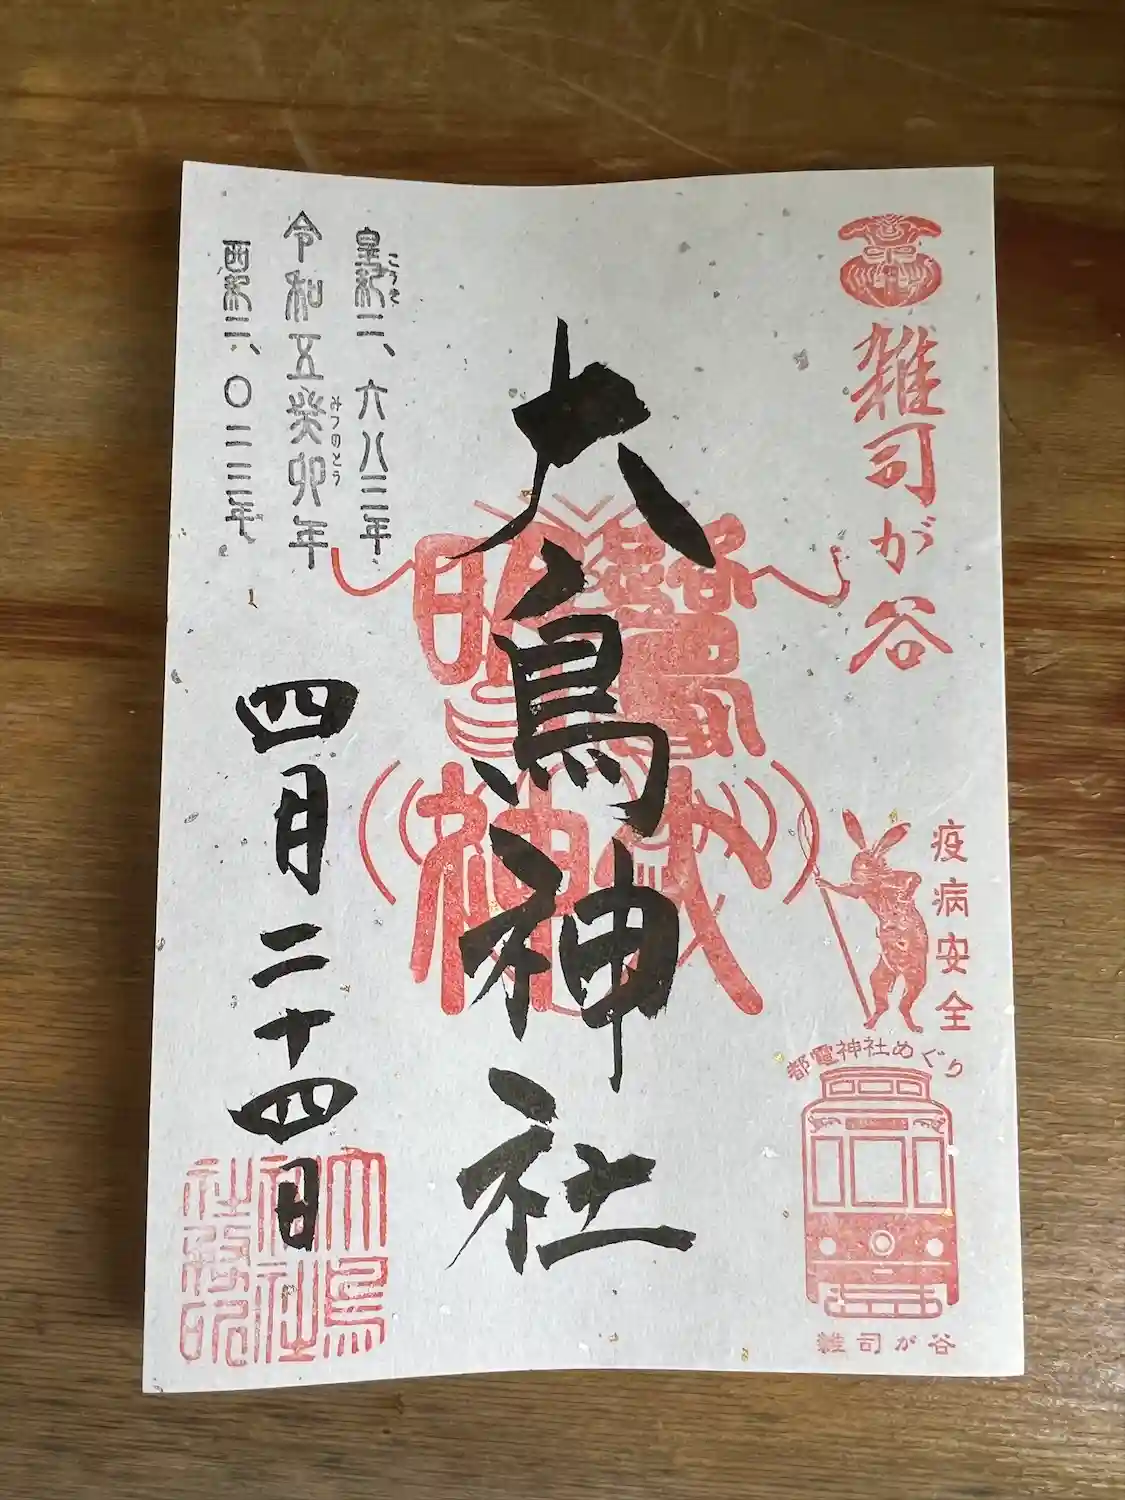 雑司が谷
疫病安全
都電神社めぐり
雑司が谷
大鳥神社
皇紀二、六八三年
こうき
令和五癸卯年
みづのとう
西紀二、〇二三年
四月二十四日
大鳥
神社
社務印